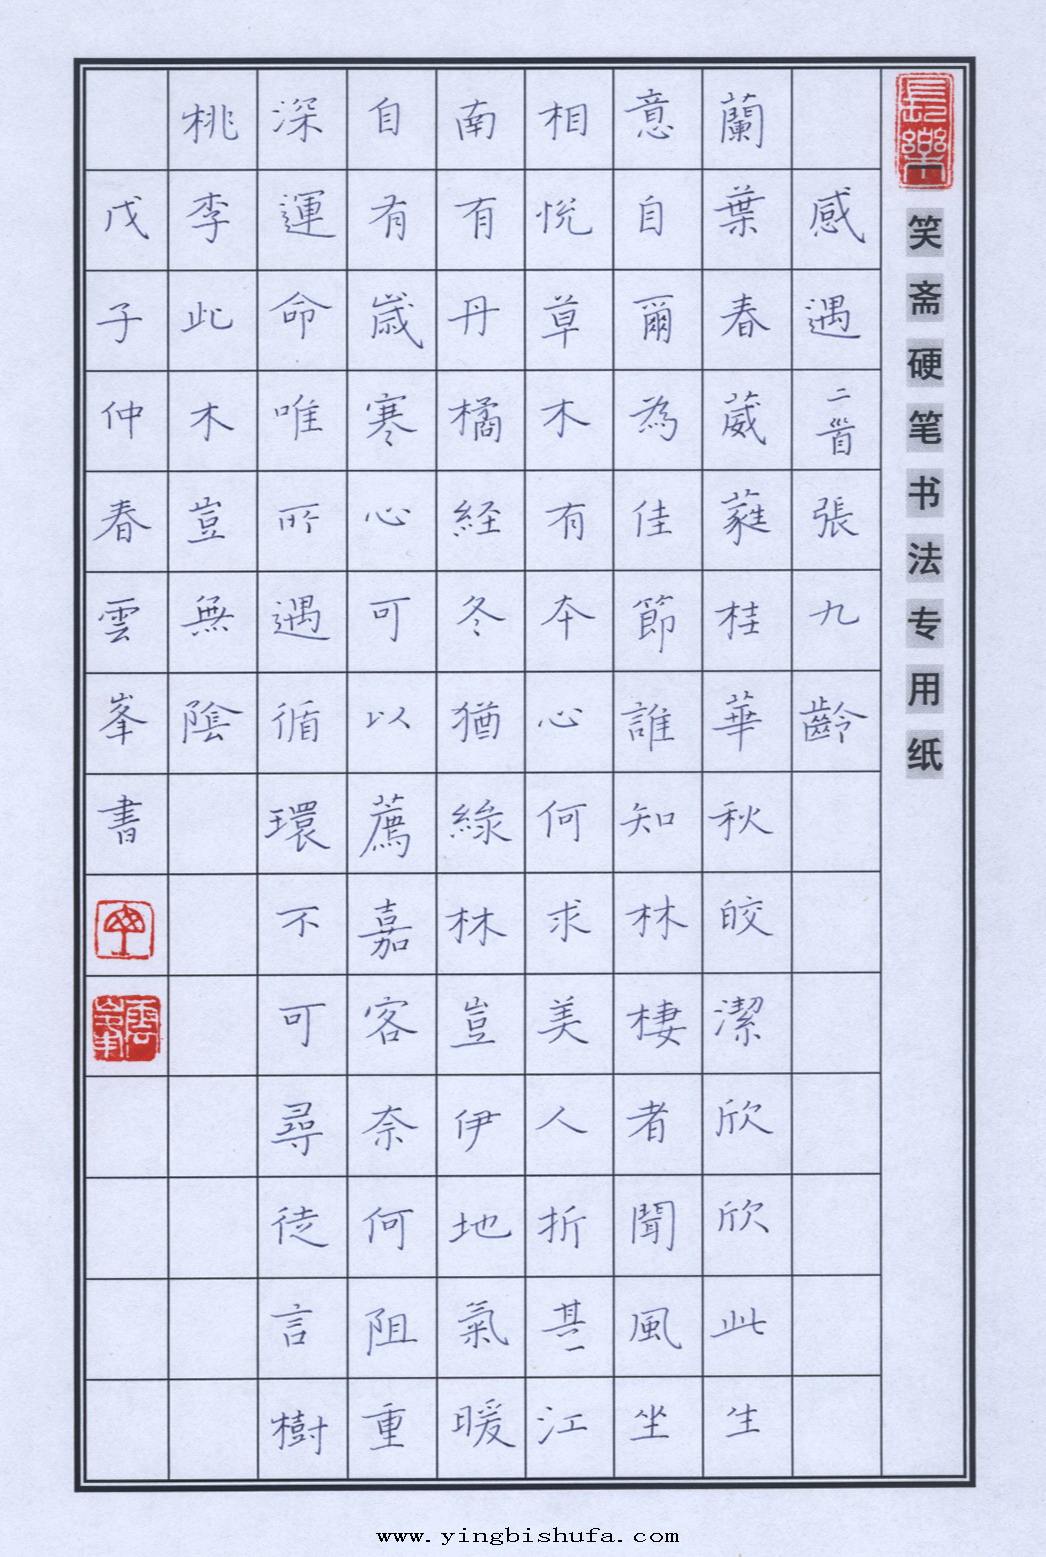 笑斋硬笔书法专用纸
感遇二首張九齡
蘭葉春葳蕤桂華秋皎潔欣欣此生
意自爾為佳節誰知林棲者聞風坐
相悅草木有本心何求美人折其一江
南有丹橘経冬猶綠林豈伊地氣暖
自有歲寒心可以薦嘉客奈何阻重
深運命唯所遇循環不可尋徒言樹
桃李此木豈無陰
戊子仲春雲峯書
www.yingbishufa.com